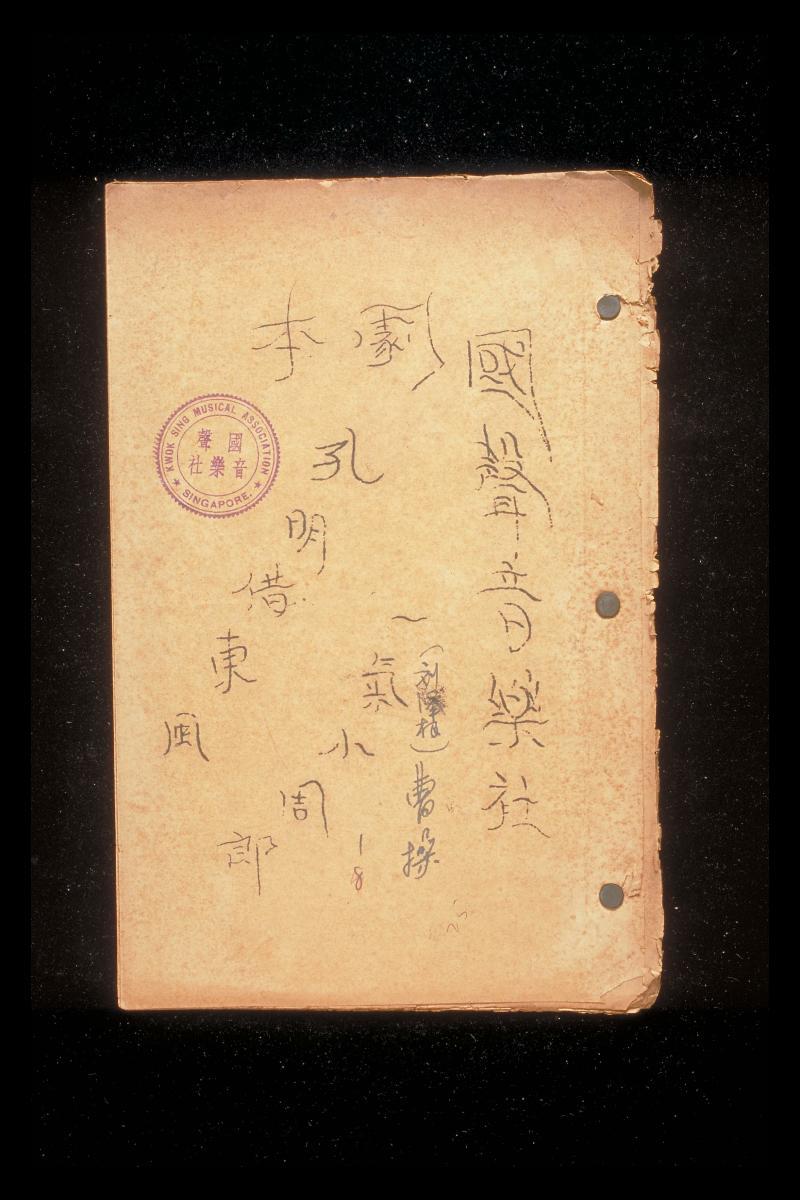 國聲音樂社
劇本
孔明借東風
一氣小周郎
曹操
18
KWOK SING MUSICAL ASSOCIATION
國聲
音樂社
★ SINGAPORE. ★